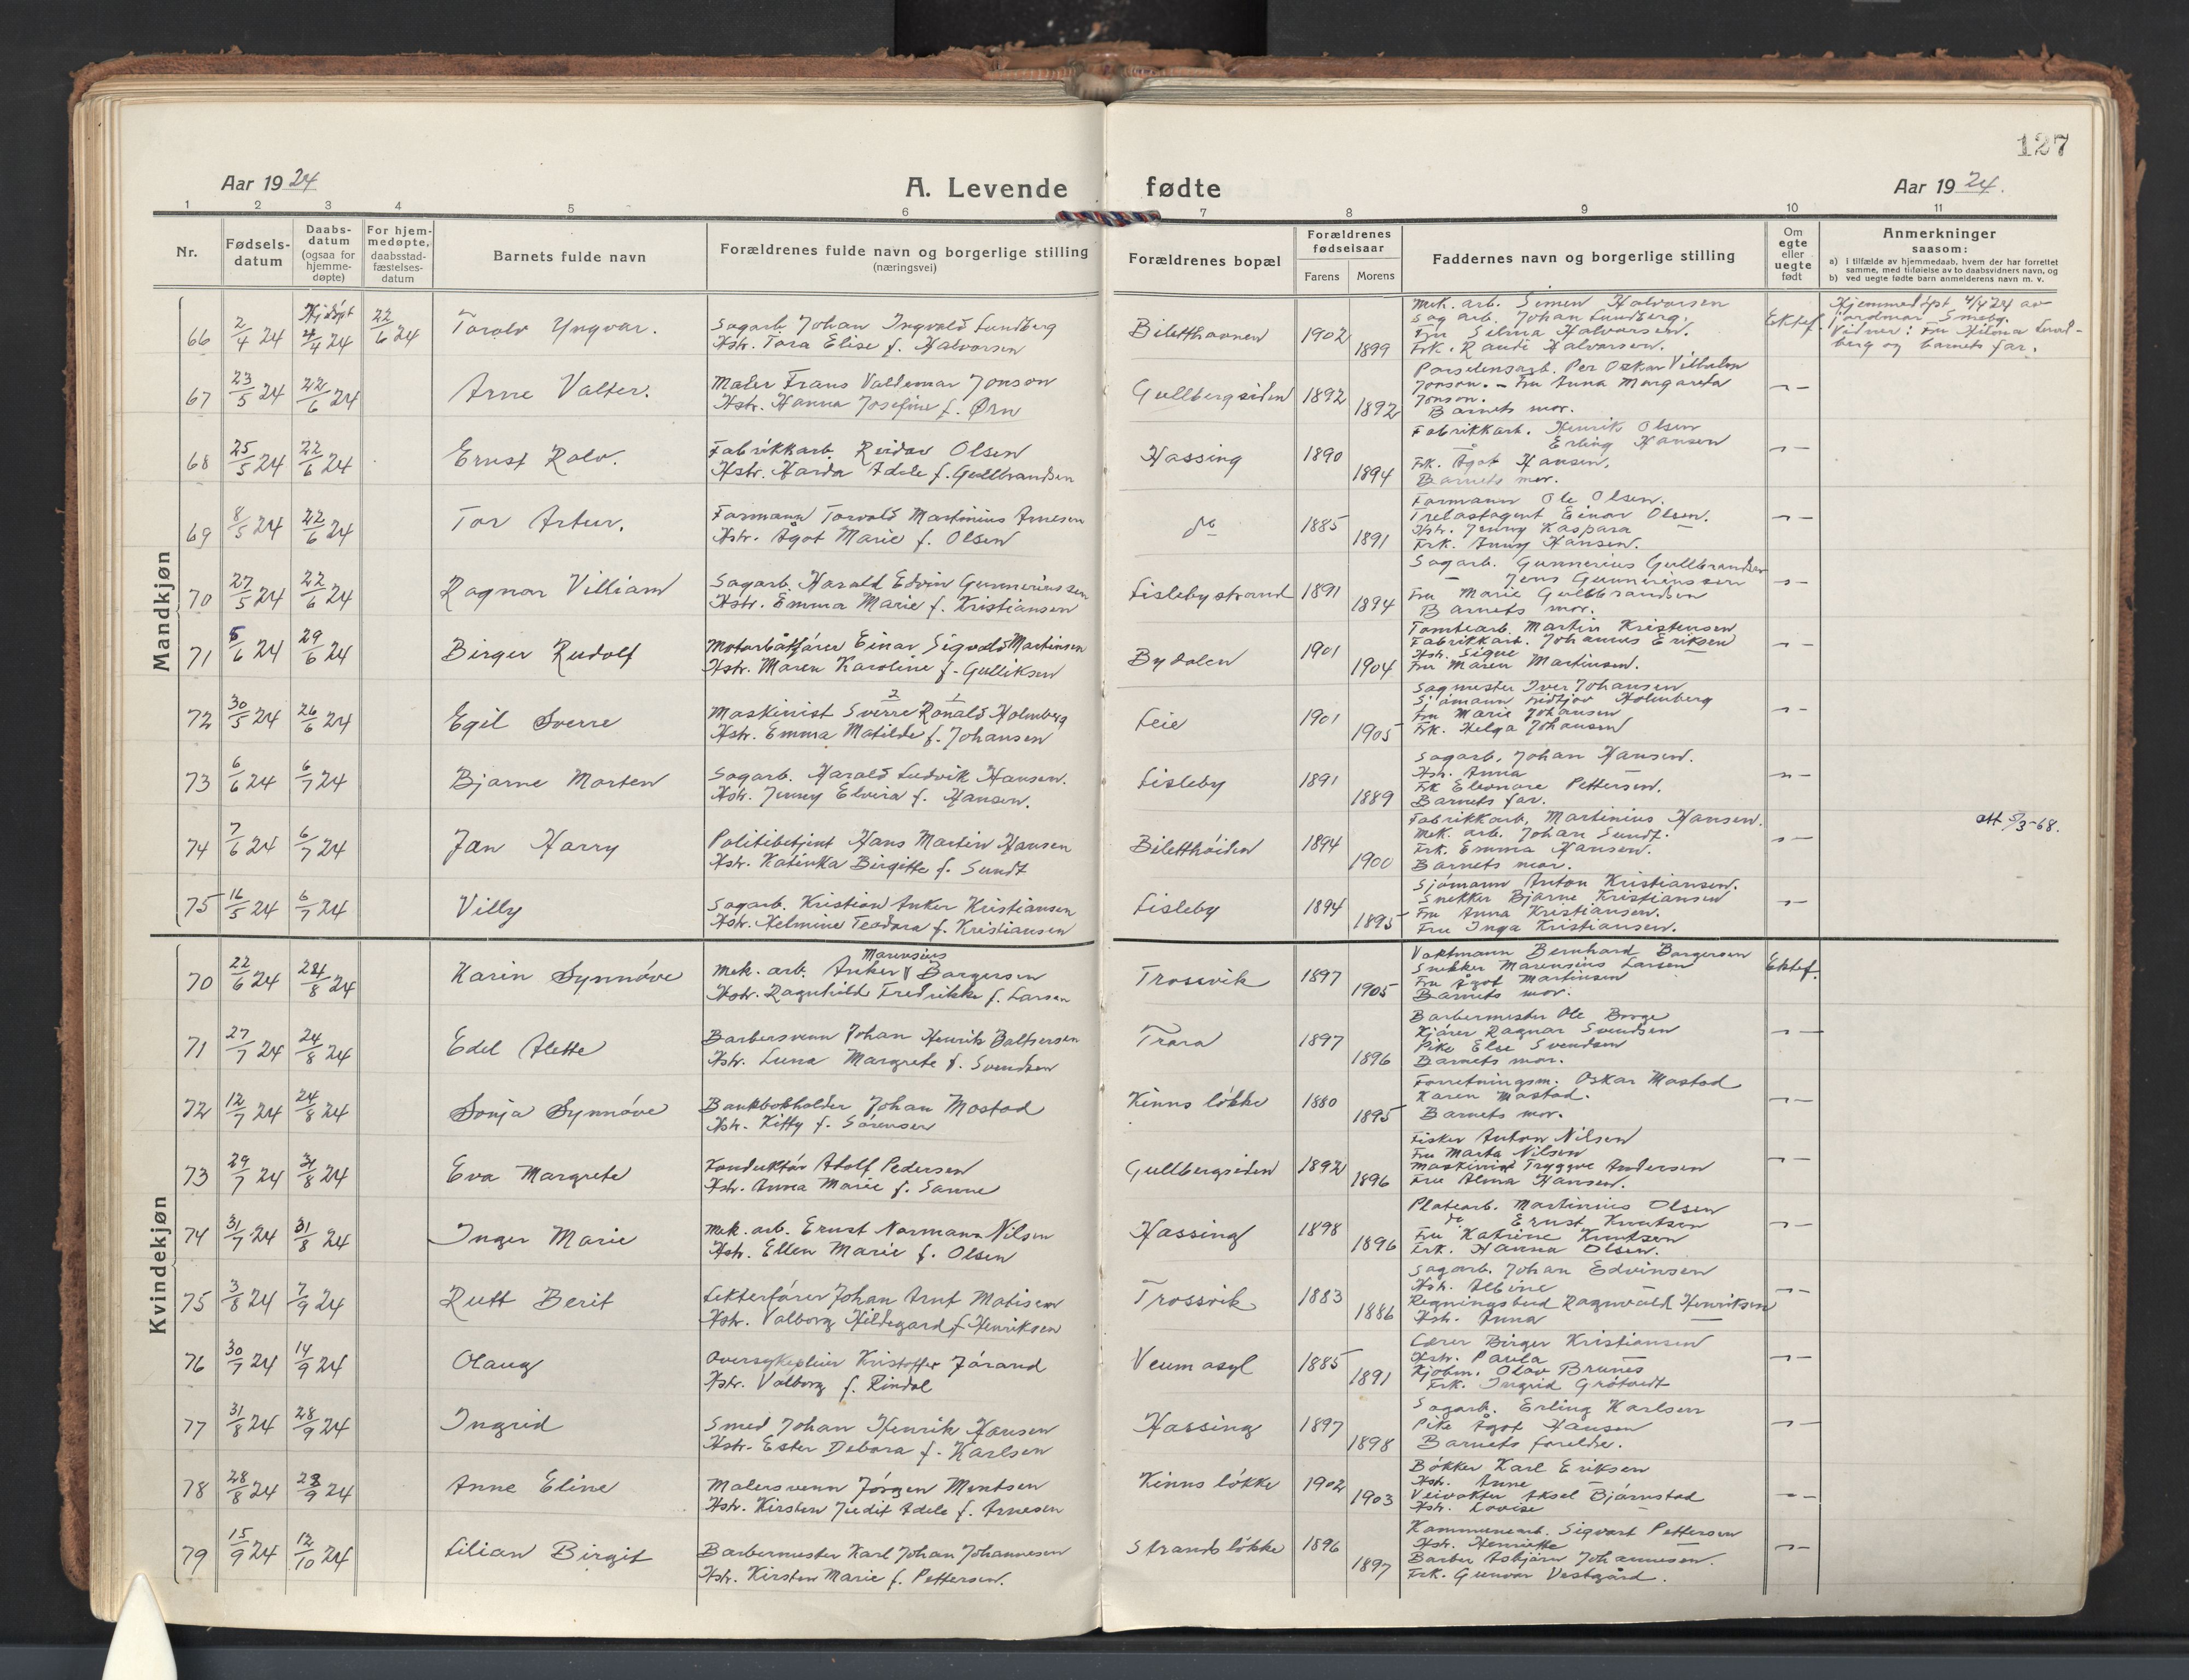 127
Aar 1924
A. Levende fødte
Aar 1924.
1 2 3 4 5 6 7 8 9 10 11
Nr.
Fødsels-
datum
Daabs-
datum
(ogsaa for
hjemme-
døpte)
For hjem-
medøpte,
daabsstad-
fæstelses-
datum
Barnets fulde navn
Forældrenes fulde navn og borgerlige stilling
(næringsvei)
Forældrenes bopæl
Forældrenes
fødselsaar
Farens Morens
Faddernes navn og borgerlige stilling
Om
egte
eller
uegte
født
Anmerkninger
saasom:
a) i tilfælde av hjemmedaab, hvem der har forrettet
samme, med tilføielse av to daabsvidners navn, og
b) ved uegte fødte barn anmelderens navn m. v.
Mandkjøn
66 2/4 24 Hjdøpt 4/4 24 22/6 24 Torolv Yngvar.
Sagarb. Johan Ingvald Lundberg
Hstr. Tora Elise f. Halvorsen
Biletthaunen 1902 1899
Mek. arb. Simen Halvorsen
Sag arb. Johan Lundberg.
Fru Silma Halvorsen.
Frk. Randi Halvorsen.
Ektef.
Hjemmedøpt 4/4 24 av
jordmor Smeby.
Vidner: Fru Hilma Lund-
berg og barnets far.
67 23/5 24 22/6 24 Arne Valter.
Maler Frans Valdemar Jonson
Hstr. Hanna Josefine f. Ørn
Gullbergsiden 1892 1892
Porselensarb. Per Oskar Vilhelm
Jonson. - Fru Anna Margareta
Jonson.
Barnets mor.
68 25/5 24 22/6 24 Ernst Rolv.
Fabrikkarb. Reidar Olsen
Hstr. Harda Adele f. Gullbrandsen
Hassing 1890 1894
Fabrikkarb. Henrik Olsen
Erling Hansen
Frk. Ågot Hansen.
Barnets mor.
69 8/5 24 22/6 24 Tor Artur.
Formann Torvald Martinius Arnesen
Hstr. Ågot Marie f. Olsen
do 1885 1891
Formann Ole Olsen.
Trelastagent Einar Olsen.
Hstr. Jenny Kaspara —
Frk. Anny Hansen.
70 27/5 24 22/6 24 Ragnar Villiam
Sagarb. Harald Edvin Gunneriussen
Hstr. Emma Marie f. Kristiansen
Lislebystrand 1891 1894
Sagarb. Gunnerius Gullbrandsen
— Jens Gunneriussen
Fru Marie Gullbrandsen
Barnets mor.
71 5/6 24 29/6 24 Birger Rudolf
Motorbåtfører Einar Sigvald Martinsen
Hstr. Maren Karoline f. Gulliksen
Bydalen 1901 1904
Tomtearb. Martin Kristensen
Fabrikkarb. Johannes Eriksen
Hstr. Signe —
Fru Maren Martinsen.
72 30/5 24 26/6 24 Egil Sverre
2 1
Maskinist Sverre Ronald Holmberg
Hstr. Emma Matilde f. Johansen
Leie 1901 1905
Sagmester Iver Johansen
Sjømann Fridtjov Holmberg
Fru Marie Johansen
Frk. Helga Johansen
73 6/6 24 6/7 24 Bjarne Morten
Sagarb. Harald Ludvik Hansen.
Hstr. Jenny Elvira f. Hansen.
Lisleby 1891 1889
Sagarb. Johan Hansen.
Hstr. Anna —
Frk Eleonore Pettersen.
Barnets far.
74 7/6 24 6/7 24 Jan Harry
Politibetjent Hans Martin Hansen
Hstr. Katinka Birgitte f. Sundt
Biletthøiden 1894 1900
Fabrikkarb. Martinius Hansen.
Mek. arb. Johan Sundt.
Frk. Emma Hansen.
Barnets mor.
att 5/3-68.
75 16/5 24 6/7 24 Villy
Sagarb. Kristian Anker Kristiansen
Hstr. Helmine Teodora f. Kristiansen
Lisleby 1894 1895
Sjømann Anton Kristiansen.
Snekker Bjarne Kristiansen
Fru Anna Kristiansen.
Fru Inga Kristiansen.
Kvindekjøn
70 22/6 24 24/8 24 Karin Synnøve
Marensius
Mek. arb. Anker Borgersen
Hstr. Ragnhild Fredrikke f. Larsen
Trosvik 1897 1905
Vaktmann Bernhard Borgersen
Snekker Marensius Larsen
Fru Ågot Martinsen
Barnets mor.
Ektef.
71 27/7 24 24/8 24 Edel Alette
Barbersvenn Johan Henrik Baltsersen
Hstr. Luna Margrete f. Svendsen
Trara 1897 1896
Barbermester Ole Borge
Kjører Ragnar Svendsen
Pike Else Svendsen
Barnets mor.
72 12/7 24 24/8 24 Sonja Synnøve
Bankbokholder Johan Mostad
Hstr. Kitty f. Sørensen
Kinns løkke 1880 1895
Forretningsm. Oskar Mostad
Karen Mostad.
Barnets mor.
73 29/7 24 31/8 24 Eva Margrete
Konduktør Adolf Pedersen
Hstr. Anna Marie f. Sanne
Gullbergsiden 1892 1896
Fisker Anton Nilsen
Fru Marta Nilsen
Maskinist Tryggve Andersen
Fru Alma Hansen.
74 31/7 24 31/8 24 Inger Marie
Mek. arb. Ernst Normann Nilsen
Hstr. Ellen Marie f. Olsen
Hassing 1898 1896
Platearb. Martinius Olsen
do Ernst Knutsen
Fru Katrine Knutsen
Frk. Hanna Olsen.
75 3/8 24 7/9 24 Rutt Berit
Lekterfører Johan Arnt Matisen
Hstr. Valborg Hildegard f. Henriksen
Trosvik 1883 1886
Sagarb. Johan Edvinsen
Hstr. Albine —
Regningsbud Ragnvald Henriksen
Hstr. Anna —
76 30/7 24 14/9 24 Olaug
Oversykepleier Kristoffer Jørand
Hstr. Valborg f. Rindal
Veum asyl 1885 1891
Lærer Birger Kristiansen
Hstr. Paula —
Kjøbm. Olav Brunes
Frk. Ingrid Grøtvedt
77 31/8 24 28/9 24 Ingrid
Smed Johan Henrik Hansen
Hstr. Ester Debora f. Karlsen
Hassing 1897 1898
Sagarb. Erling Karlsen
Pike Ågot Hansen
Barnets foreldre.
78 28/8 24 28/9 24 Anne Eline
Malersvenn Jørgen Mentsen
Hstr. Kirsten Judit Adele f. Arnesen
Kinns løkke 1902 1903
Bøkker Karl Eriksen
Hstr. Anne —
Veivokter Aksel Bjørnstad
Hstr. Lovise —
79 15/9 24 12/10 24 Lilian Birgit
Barbermester Karl Johan Johannesen
Hstr. Kirsten Marie f. Pettersen.
Strands løkke 1896 1897
Kommunearb. Sigvart Pettersen
Hstr. Henriette —
Barber Asbjørn Johannesen.
Frk. Gunvor Vestgård.